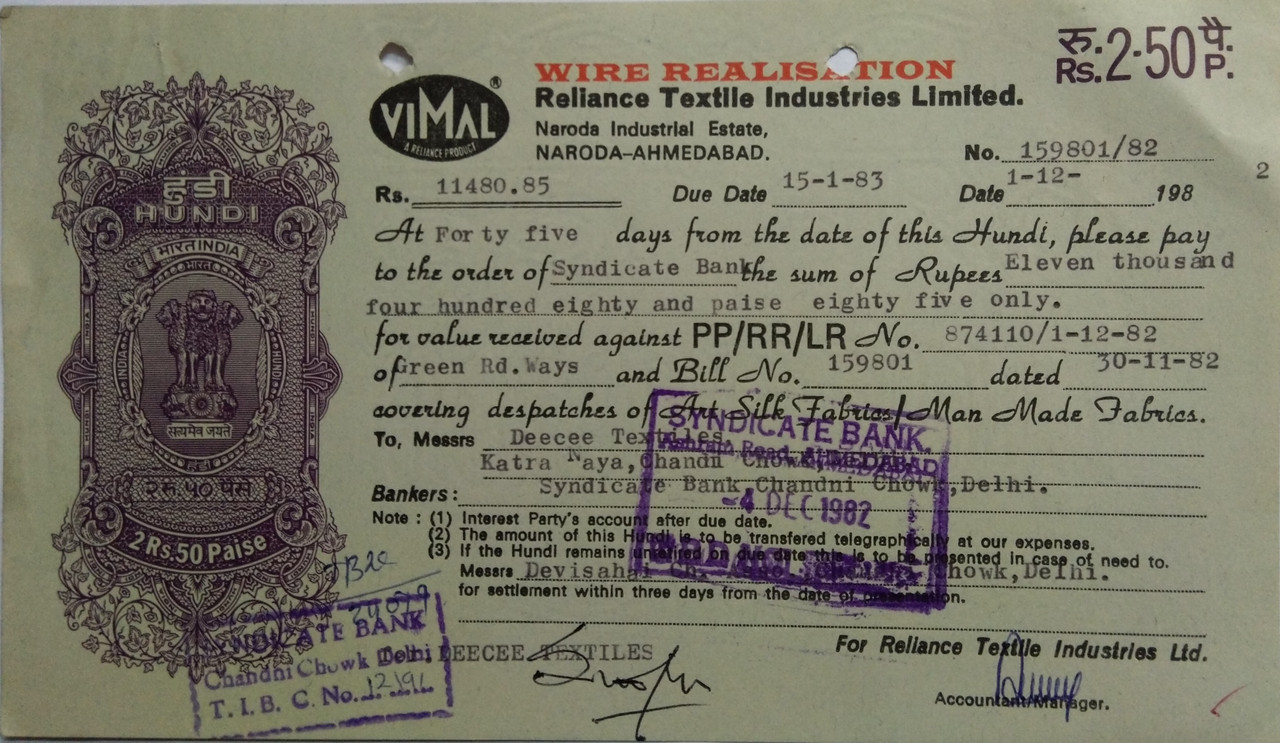 रु. 2·50 पै.
Rs. P.
WIRE REALISATION
Reliance Textile Industries Limited.
VIMAL ®
A RELIANCE PRODUCT
Naroda Industrial Estate,
NARODA-AHMEDABAD.
No. 159801/82
Rs. 11480.85 Due Date 15-1-83 Date 1-12- 198 2
At Forty five days from the date of this Hundi, please pay
to the order of Syndicate Bank the sum of Rupees Eleven thousand
four hundred eighty and paise eighty five only.
for value received against PP/RR/LR No. 874110/1-12-82
of Green Rd.Ways and Bill No. 159801 dated 30-11-82
covering despatches of Art Silk Fabrics/Man Made Fabrics.
To, Messrs Deecee Textiles,
Katra Naya, Chandni Chowk,
Bankers: Syndicate Bank, Chandni Chowk, Delhi.
Note : (1) Interest Party's account after due date.
(2) The amount of this Hundi is to be transfered telegraphically at our expenses.
(3) If the Hundi remains unretired on due date this is to be presented in case of need to.
Messrs Devisahai Chowk, Delhi.
for settlement within three days from the date of presentation.
For Reliance Textile Industries Ltd.
DEECEE TEXTILES
Accountant/Manager.
हुंडी
HUNDI
भारत INDIA
भारत
INDIA
HUNDI
सत्यमेव जयते
हुंडी
२ रु. ५० पैसे
2 Rs. 50 Paise
SYNDICATE BANK,
Ashram Road, AHMEDABAD
-4 DEC 1982
SYNDICATE BANK
Chandni Chowk Delhi
T. I. B. C. No. 12/91